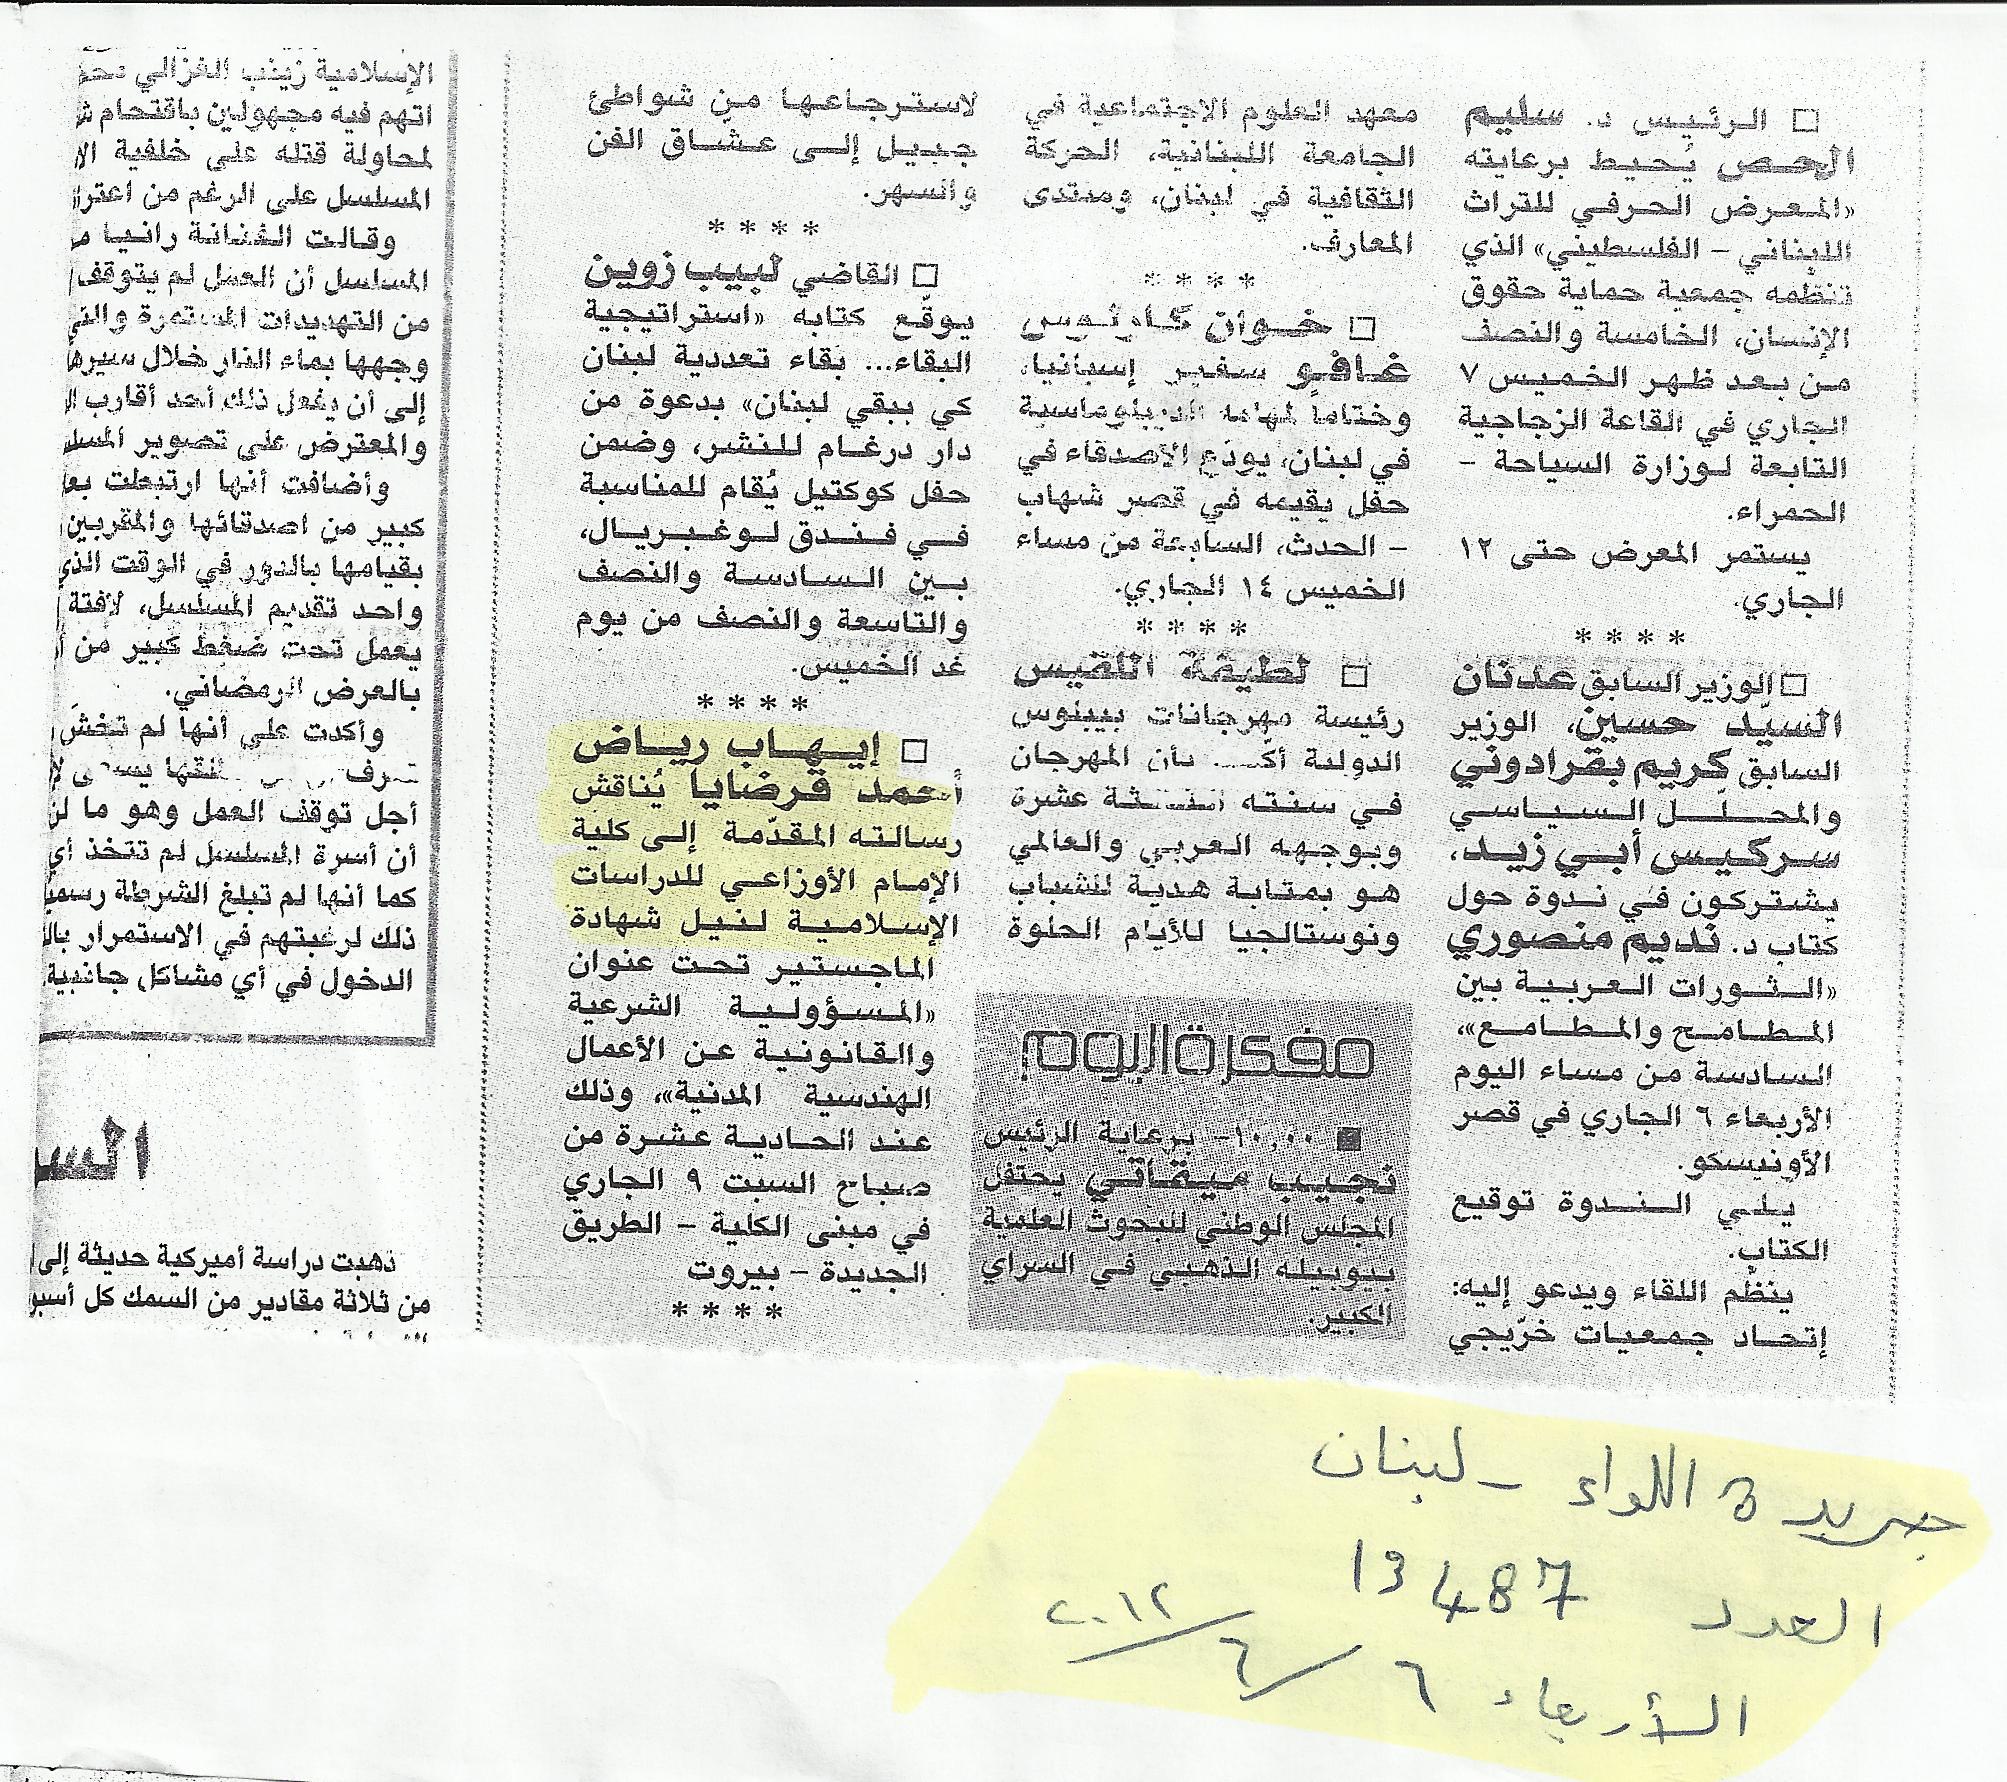 □ الرئيس د. سليم
الحص يُحيط برعايته
«المعرض الحرفي للتراث
اللبناني – الفلسطيني» الذي
تنظمه جمعية حماية حقوق
الإنسان، الخامسة والنصف
من بعد ظهر الخميس ٧
الجاري في القاعة الزجاجية
التابعة لوزارة السياحة –
الحمراء.
يستمر المعرض حتى ١٢
الجاري.
****
□ الوزير السابق عدنان
السيّد حسين، الوزير
السابق كريم بقرادوني
والمحلّل السياسي
سركيس أبي زيد،
يشتركون في ندوة حول
كتاب د. نديم منصوري
«الثورات العربية بين
المطامح والمطامع»،
السادسة من مساء اليوم
الأربعاء ٦ الجاري في قصر
الأونيسكو.
يلي الندوة توقيع
الكتاب.
ينظّم اللقاء ويدعو إليه:
إتحاد جمعيات خرّيجي
معهد العلوم الاجتماعية في
الجامعة اللبنانية، الحركة
الثقافية في لبنان، ومنتدى
المعارف.
****
□ خوان كارلوس
غافو سفير إسبانيا،
وختاماً لمهامه الديبلوماسية
في لبنان، يودّع الأصدقاء في
حفل يقيمه في قصر شهاب
– الحدث، السابعة من مساء
الخميس ١٤ الجاري.
****
□ لطيفة اللقيس
رئيسة مهرجانات بيبلوس
الدولية بأن المهرجان
في سنته عشرة
وبوجهه العربي والعالمي
هو بمثابة هدية للشباب
ونوستالجيا للأيام الحلوة
لاسترجاعها من شواطئ
جبيل إلى عشاق الفن
والسهر.
****
□ القاضي لبيب زوين
يوقّع كتابه «استراتيجية
البقاء... بقاء تعددية لبنان
كي يبقى لبنان» بدعوة من
دار درغام للنشر، وضمن
حفل كوكتيل يُقام للمناسبة
في فندق لوغبريال،
بين السادسة والنصف
والتاسعة والنصف من يوم
غد الخميس.
****
□ إيهاب رياض
أحمد قرضايا يُناقش
رسالته المقدّمة إلى كلية
الإمام الأوزاعي للدراسات
الإسلامية لنيل شهادة
الماجستير تحت عنوان
«المسؤولية الشرعية
والقانونية عن الأعمال
الهندسية المدنية»، وذلك
عند الحادية عشرة من
صباح السبت ٩ الجاري
في مبنى الكلية – الطريق
الجديدة – بيروت
****
مفكرة اليوم
■ ١٠,٠٠- برعاية الرئيس
نجيب ميقاتي يحتفل
المجلس الوطني للبحوث العلمية
بيوبيله الذهبي في السراي
الكبير.
الإسلامية زينب الغزالي
اتهم فيه مجهولين باقتحام
لمحاولة قتله على خلفية
المسلسل على الرغم من
وقالت الفنانة رانيا
المسلسل أن العمل لم يتوقف
من التهديدات المستمرة
وجهها بماء النار خلال
إلى أن يفعل ذلك أحد أقارب
والمعترض على تصوير
وأضافت أنها ارتبطت
كبير من اصدقائها والمقربين
بقيامها بالدور في الوقت الذي
واحد تقديم المسلسل، لافتة
يعمل تحت ضغط كبير من
بالعرض الرمضاني.
وأكدت على أنها لم تخشَ
أجل توقف العمل وهو ما
أن أسرة المسلسل لم تتخذ أي
كما أنها لم تبلغ الشرطة
ذلك لرغبتهم في الاستمرار
الدخول في أي مشاكل جانبية
ذهبت دراسة أميركية حديثة إلى
من ثلاثة مقادير من السمك كل
جريدة اللواء – لبنان
العدد 13487
الأربعاء ٦/٦/٢٠١٢